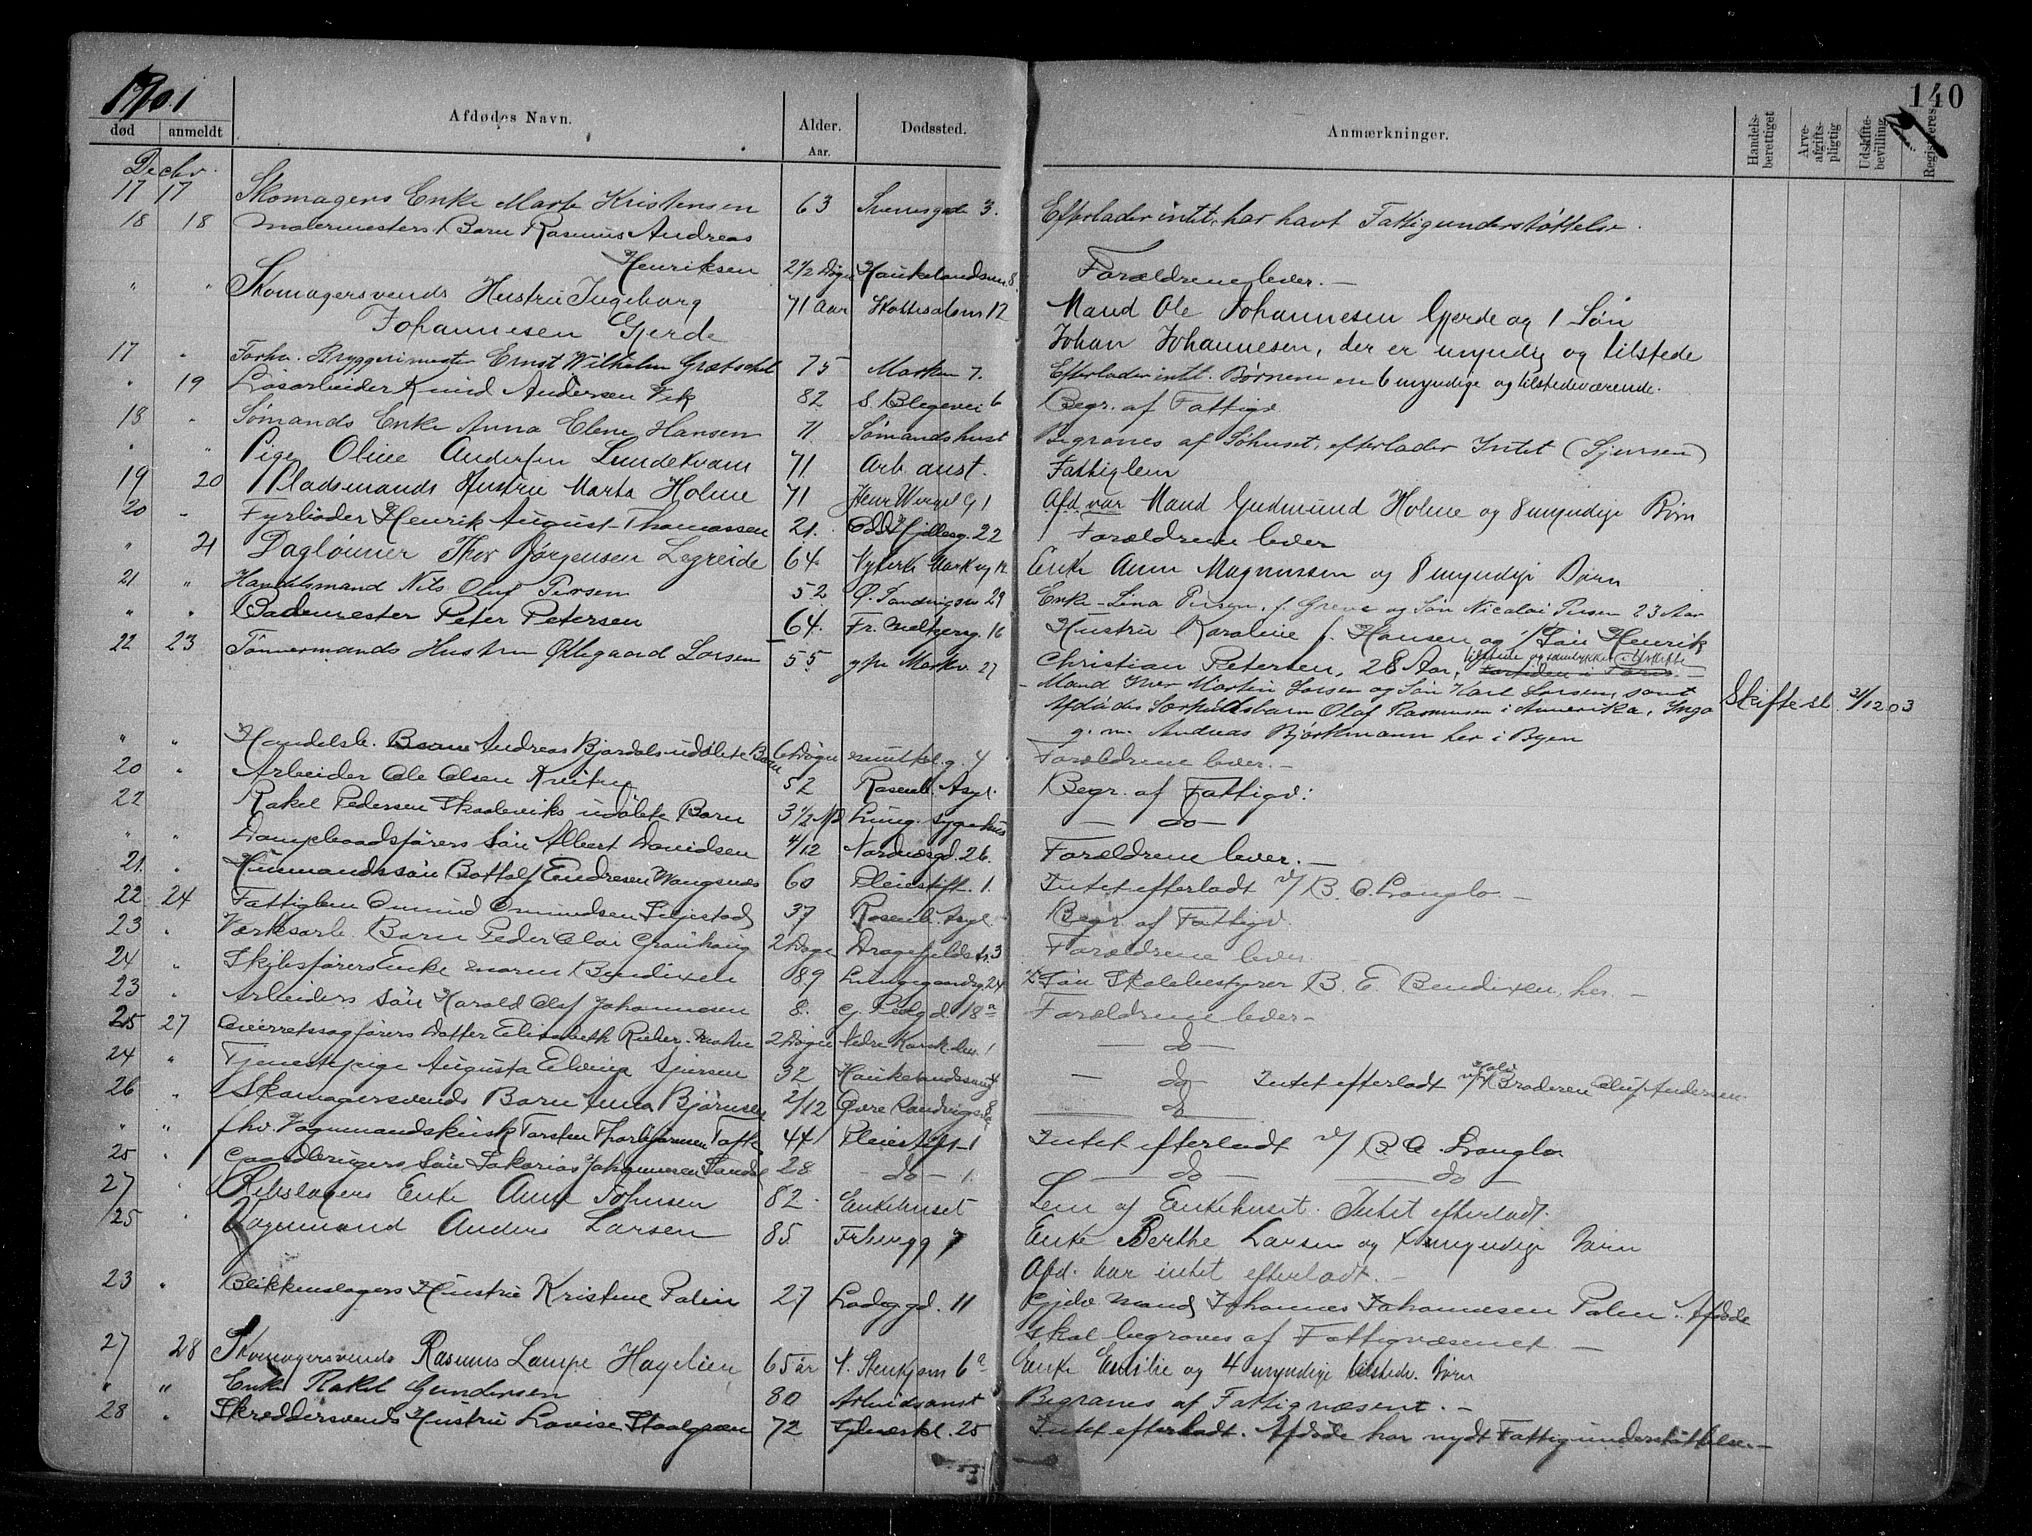 1901
140
død anmeldt Afdødes Navn. Alder. Aar. Dødssted. Anmærkninger. Handelsberettiget Arveafgiftspligtig Udskiftebevilling Registreres
Decbr.
17 17 Skomagers Enke Marte Kristensen 63 Sverresgade 3. Efterlader intet, har havt Fattigunderstøttelse.
18 18 Malermesters Barn Rasmus Andreas
Henriksen 2 1/2 Døgn Haukelandsvei 8. Forældrene lever. —
" " Skomagersvends Hustru Ingeborg 71 Aar Skottesalen 12 Mand Ole Johannesen Gjerde og 1 Søn
Johannesen Gjerde Johan Johannesen, der er umyndig og tilstede
17 " Forhv. Bryggerimester Ernst Wilhelm Grætschel 75 Marken 7. Efterlader intet. Børnene ere 6 myndige og tilstedeværende.
" 19 Løsarbeider Knud Andersen Vik 82 S. Blegevei 6 Begr. af Fattigv.
18 " Sømands Enke Anna Elene Hansen 71 Sømandshuset Begraves af Søhuset, efterlader Intet (Sjursen)
" " Pige Oline Andersen Lundekvam 71 Arb. anst. Fattiglem
19 20 Pladsmands Hustru Marta Holme 71 Henr Wergel G 1 Afd. var Mand Gudmund Holme og 8 myndige Børn
20 " Fyrbøder Henrik August Thomassen 21. Odd Hjellesg. 22 Forældrene lever
" 21 Daglønner Thor Jørgensen Legreide 64. Nykirk Mark og 12 Enke Anne Magnussen og 8 myndige Børn
21 " Handelsmand Nils Oluf Persen 52 Ø. Sandvigsv 29 Enke Lina Persen, f. Greve og Søn Nicolai Persen 23 Aar
" " Bademester Peter Petersen 64. Fr. Meltzersg. 16 Hustru Karoline f. Hansen og 1 Søn Henrik
Christian Petersen, 28 Aar, tilstede og samtykker i Uskifte
22 23 Tømmermands Hustru Ollegaard Larsen 55 Markv. 27 Mand Iver Martin Larsen og Søn Karl Larsen, samt
Afdødes Særkuldsbarn Olaf Rasmussen i Amerika, Inga Skiftesl. 31/12 03
g. m. Andreas Bjørkmann her i Byen
" " Handelsb. Andreas Bjordals udøbte Barn 6 Døgn Muntkl.g. 4 Forældrene lever. —
20 " Arbeider Ole Olsen 52 Rosenb. Asyl. Begr. af Fattigv:
22 Rakel Pedersen Skaaleviks udøbte Barn 3 1/2 Md Lung. sygehus — do —
" " Dampbaadsførers Søn Albert Davidsen 4/12 Nordnæsgd. 26. Forældrene lever. —
21. " Husmandssøn Bottolf Endresen Wangsnæs 60 Pleiestift. 1. Intet efterladt v/ B. C. Langlo. —
22 24 Fattiglem Omund Omundsen 37 Rosenb. Asyl. Begr. af Fattigv.
23 " Værksarb. Barn Peder Olai Grauhaug 2 Døgn Dragefjeldstr. 3 Forældrene lever
24 " Skibsførers Enke Maren Bendixen 89 Lungegaardsg. 24 Søn Skolebestyrer B. E. Bendixen, her. —
23 " Arbeiders Søn Harald Olaf Johannesen 8. 18 a Forældrene lever —
25 27 Overretssagførers Datter Elisabeth Rieber-Mohn 2 Døgn Nedre Korsk.alm. 1 — do —
24 " Tjenestepige Augusta Elvina Sjursen 32 Haukelandsvei 4 — do — Intet efterladt v/ Broderen Oluf Andersen.
26 " Skomagersvends Barn Anna Bjørnsen 2/12 Øvre Sandvigsv. 8 a — do —
" " fhv. Vognmandskusk Torsten Thorbjørnsen Tofte 44 Pleiestift. 1 Intet efterladt v/ B. C. Langlo.
25 " Gaardbrugers Søn Sakarias Johannesen Sande 28 — do — 1. — do — — do —
27 " Rebslagers Enke Anne Johnsen 82. Enkehuset Lem af Enkehuset. Intet efterladt.
25 " Vognmand Anders Larsen 85 7 Enke Berthe Larsen og 4 myndige Børn
Afd. har intet efterladt. —
23 " Blikkenslagers Hustru Kristine Palin 27 Ladeggd. 11 Gjelv. Mand Johannes Johannesen Palen. Afdøde
skal begraves af Fattigvæsenet. —
27 28 Skomagersvend Rasmus Lampe Hagelien 65 år N. Stenkjem 6 a Enke Emilie og 4 myndige tilstede. Børn
" " Enke Rakel Gundersen 80 Arbeidsanst Begraves af Fattigvæsent. —
28 " Skreddersvends Hustru Lovise Staalgaen 72 25 Intet efterladt. Afdøde har nydt Fattigunderstøttelse. —